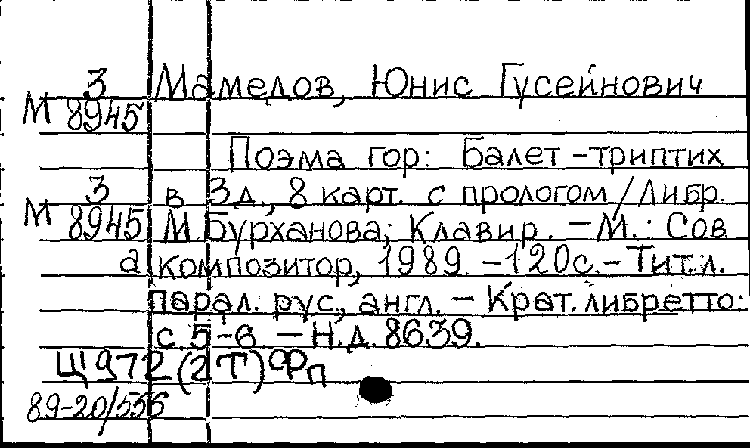 3 Мамедов, Юнис Гусейнович
М 8945
Поэма гор: Балет-триптих
3 в 3 д., 8 карт. с прологом / Либр.
М 8945 М. Бурханова; Клавир. - М.: Сов
а композитор, 1989. - 120 с. - Тит. л.
парал. рус., англ. - Крат. либретто:
с. 5-6. - Н. д. 8639.
Щ 972 (2Т) Фп
89-20/556